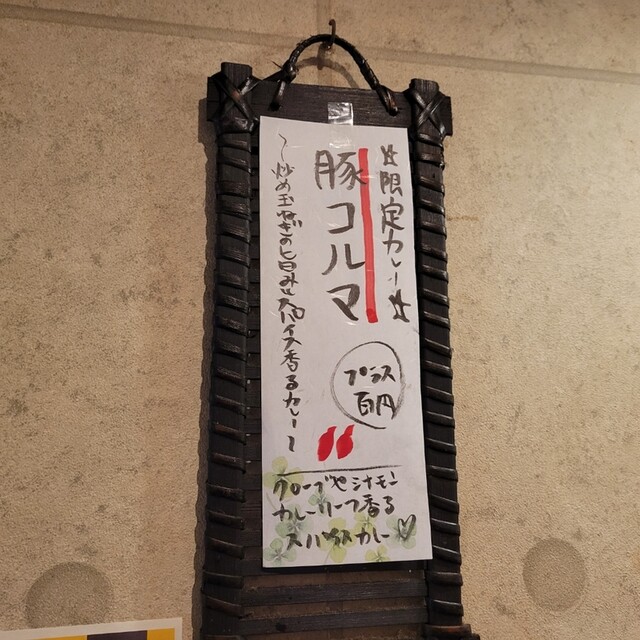 ☆限定カレー☆
豚コルマ
〜炒め玉ねぎの旨みとスパイス香るカレー〜
プラス
百円
クローブやシナモン
カレーリーフ香る
スパイスカレー♡